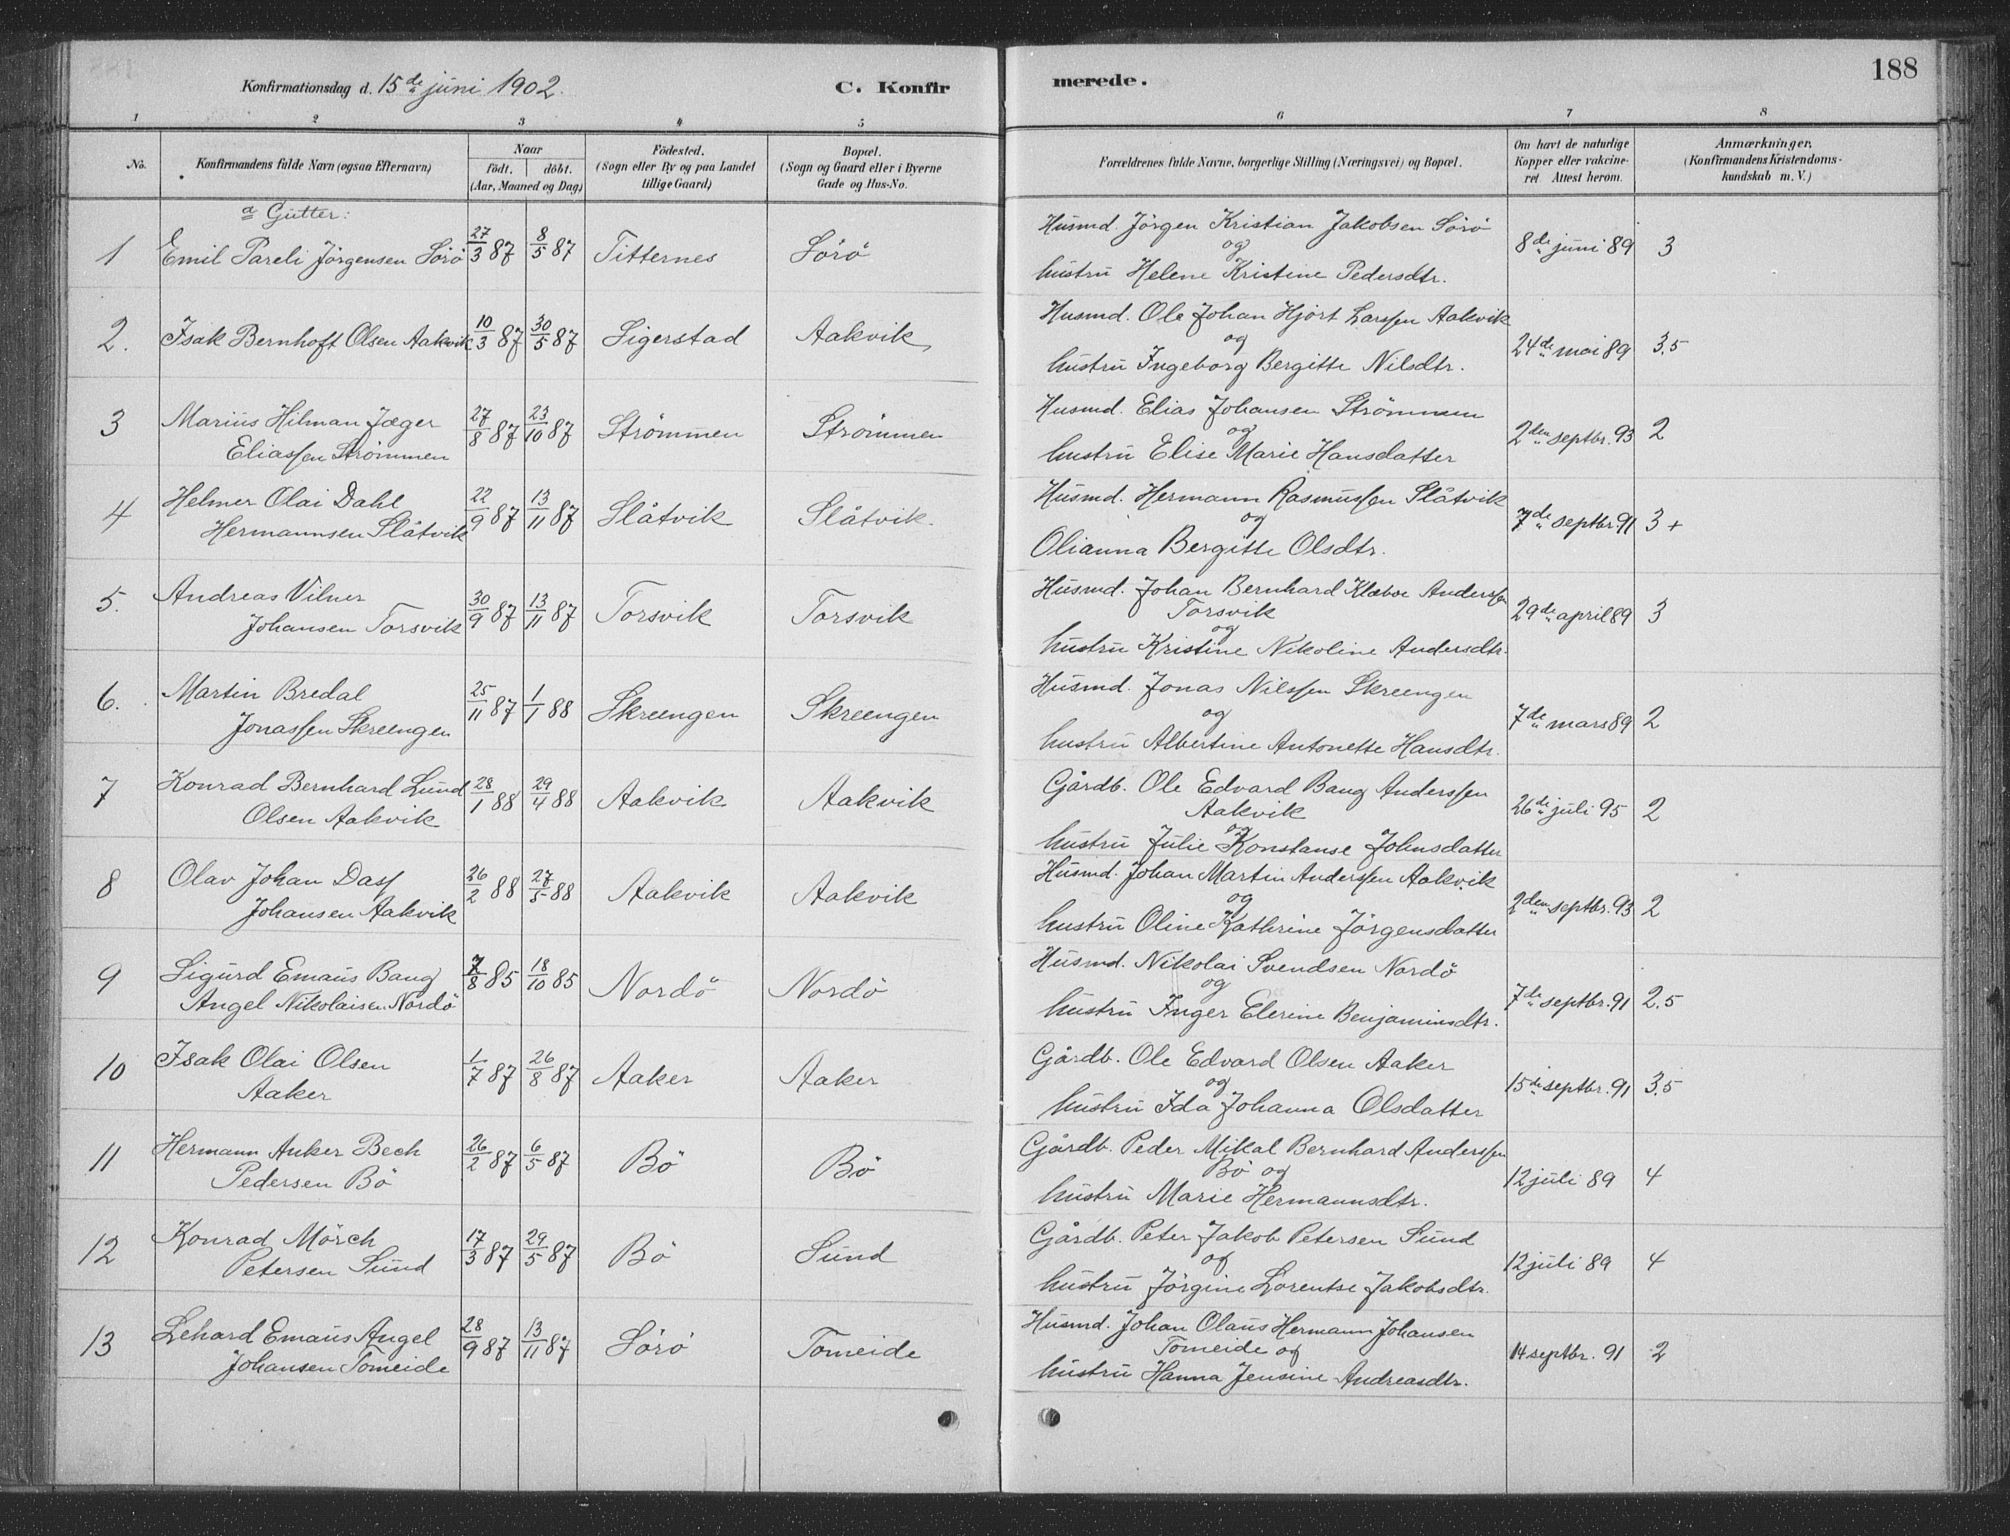 188
Konfirmationsdag d. 15de juni 1902.
C. Konfirmerede.
1 2 3 4 5 6 7 8
No.
Konfirmandens fulde Navn (ogsaa Efternavn)
Naar
født. døbt.
(Aar, Maaned og Dag)
Fødested.
(Sogn eller By og paa Landet
tillige Gaard)
Bopæl.
(Sogn og Gaard eller i Byerne
Gade og Hus-No.
Forældrenes fulde Navne, borgerlige Stilling (Næringsvei) og Bopæl.
Om havt de naturlige
Kopper eller vakcine-
ret Attest herom.
Anmærkninger.
(Konfirmandens Kristendoms-
kundskab m. V.)
a Gutter:
1 Emil Pareli Jörgensen Sörö 27/3 87 8/5 87 Titternes Sörö
Husmd. Jörgen Kristian Jakobsen Sörö
og
hustru Helene Kristine Pedersdtr.
8de juni 89 3
2. Isak Bernhoft Olsen Aakvik 10/3 87 30/5 87 Sigerstad Aakvik
Husmd. Ole Johan Hjort Larssen Aakvik
og
hustru Ingeborg Bergitte Nilsdtr.
24de mai 89 3.5
3 Marius Hilman Jæger
Eliassen Strömmen
27/8 87 23/10 87 Strömmen Strömmen
Husmd. Elias Johansen Strömmen
og
hustru Elise Marie Hansdatter
2den septbr. 93 2
4 Helmer Olai Dahl
Hermannsen Slåtvik
22/9 87 13/11 87 Slåtvik Slåtvik.
Husmd. Hermann Rasmussen Slåtvik
og
Olianna Bergitte Olsdtr.
7de septbr. 91 3+
5. Andreas Vilner
Johansen Torsvik
30/9 87 13/11 87 Torsvik Torsvik
Husmd. Johan Bernhard Klæboe Anderssen
Torsvik
og
hustru Kristine Nikoline Andersdtr.
29de april 89 3
6. Martin Bredal
Jonassen Skreengen
25/11 87 1/1 88 Skreengen Skreengen
Husmd. Jonas Nilssen Skreengen
og
hustru Albertine Antonette Hansdtr.
7de mars 89 2
7 Konrad Bernhard Lund
Olsen Aakvik
28/1 88 29/4 88 Aakvik Aakvik
Gårdb. Ole Edvard Bang Anderssen
Aakvik
og
hustru Julie Konstanse Johnsdatter
26de juli 95 2
8 Olav Johan Dass
Johansen Aakvik
26/2 88 27/5 88 Aakvik Aakvik
Husmd. Johan Martin Anderssen Aakvik
og
hustru Oline Kathrine Jörgensdatter
2den septbr. 93 2
9 Sigurd Emaus Bang
Angel Nikolaisen Nordö
7/8 85 18/10 85 Nordö Nordö
Husmd. Nikolai Svendsen Nordö
og
hustru Inger Elerine Benjaminsdtr.
7de septbr. 91 2.5
10 Isak Olai Olsen
Aaker
1/7 87 26/8 87 Aaker Aaker
Gårdb. Ole Edvard Olsen Aaker
og
hustru Ida Johanna Olsdatter
15de septbr. 91 3.5
11 Hermann Anker Bech
Pedersen Bö
26/2 87 6/5 87 Bö Bö
Gårdb. Peder Mikal Bernhard Anderssen
Bö og
hustru Marie Hermannsdtr.
12 juli 89 4
12 Konrad Mörch
Petersen Sund
17/3 87 29/5 87 Bö Sund
Gårdb. Peter Jakob Petersen Sund
og
hustru Jörgine Lorentse Jakobsdtr.
12 juli 89 4
13 Lehard Emaus Angel
Johansen Tomeide
28/9 87 13/11 87 Sörö Tomeide
Husmd. Johan Olaus Hermann Johansen
Tomeide og
hustru Hanna Jensine Andreasdtr.
14 septbr. 91 2